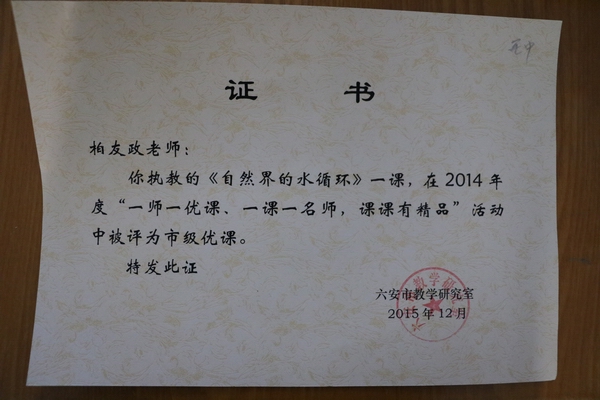 证 书
柏友政老师：
你执教的《自然界的水循环》一课，在 2014 年
度“一师一优课、一课一名师，课课有精品”活动
中被评为市级优课。
特发此证
六安市教学研究室
2015 年 12 月